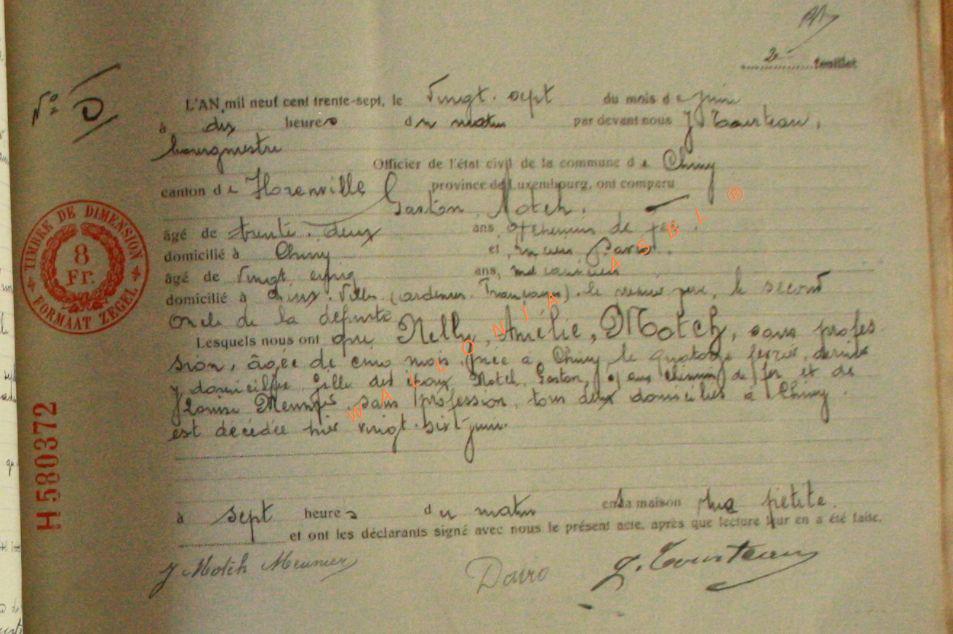 2 feuillet
N° 5
L'AN mil neuf cent trente-sept, le Vingt. sept du mois de juin
à dix heures du matin par devant nous J Tourteau,
bourgmestre
Officier de l'état civil de la commune de Chiny
canton de Florenville province de Luxembourg, ont comparu
Gaston, Motch.
âgé de trente. deux ans, chemins de fer.
domicilié à Chiny et
âgé de vingt ans,
domicilié à Deux. Villes (ardennes Françaises). le premier père, le second
oncle de la défunte
Lesquels nous ont que Nelly, Amélie, Motch, sans profes
sion, âgée de cinq mois, née à Chiny le quatorze dernier
y domiciliée, fille des époux Motch, Gaston, chemin de fer et de
Louise sans profession, tous deux domiciliés à Chiny.
est décédée hier vingt. six juin.
à sept heures du matin en sa maison rue petite.
et ont les déclarants signé avec nous le présent acte, après que lecture leur en a été faite.
J Motch Meunier J. Tourteau
TIMBRE DE DIMENSION
8
Fr.
FORMAAT ZEGEL
H 580372
WALLONIA ASBL ©